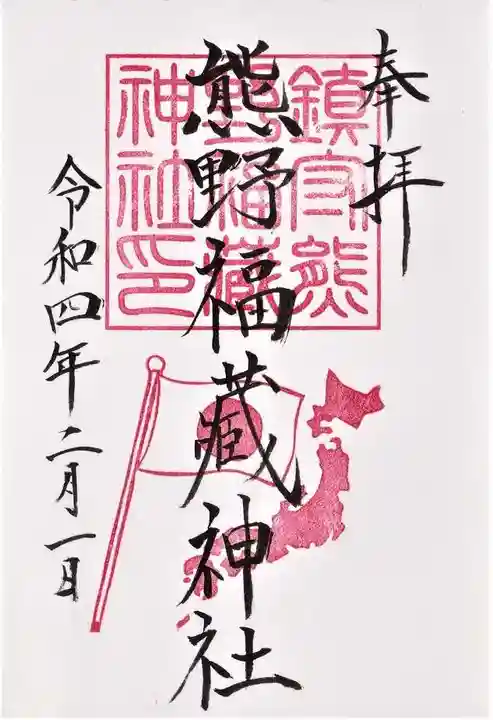 奉拝
熊野福蔵神社
令和四年二月一日
鎮守熊
野福藏
神社印